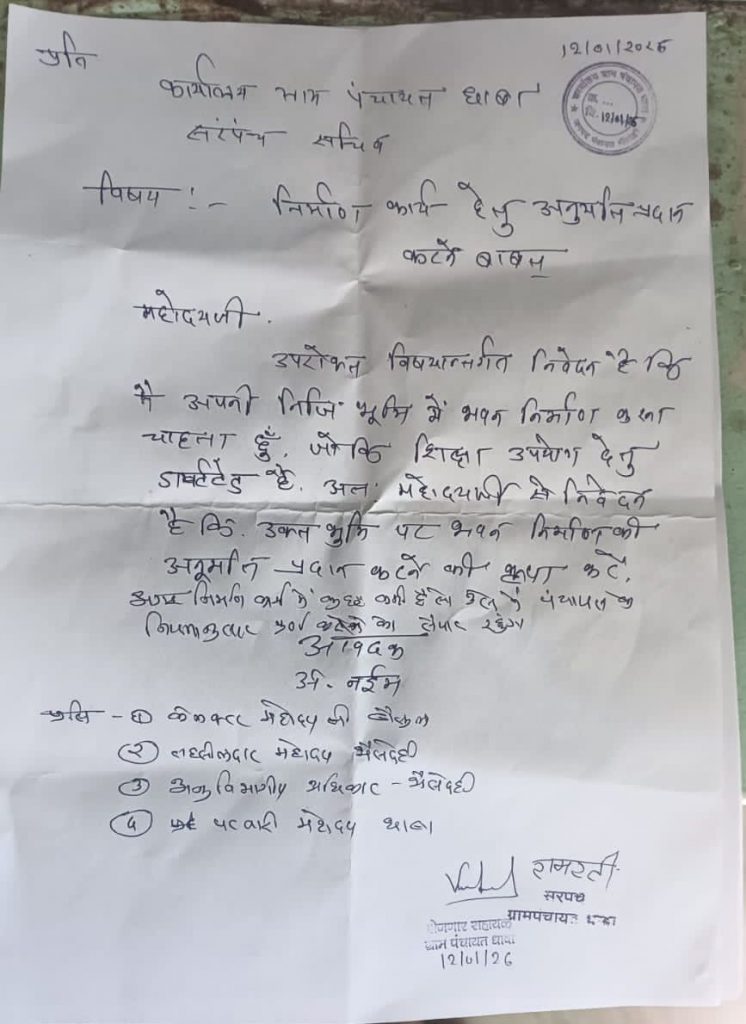 12/01/2026
प्रति
कार्यालय ग्राम पंचायत धाबा
सरपंच सचिव
दि. 12/01/26
विषय :- निर्माण कार्य हेतु अनुमति प्रदान
करने बाबत्
महोदयजी.
उपरोक्त विषयान्तर्गत निवेदन है कि
मै अपनी निजि भूमि में भवन निर्माण करना
चाहता हूँ. जो कि शिक्षा उपयोग हेतु
डायर्वटेड है. अतः महोदयजी से निवेदन
है कि. उक्त भुमि पर भवन निर्माण की
अनुमति प्रदान करने की कृपा करें.
निर्माण कार्य में कुछ कमी में पंचायत के
नियमानुसार पूर्ण करने का तैयार रहुंगा
आवेदक
अ. नईम
प्रति - (1) कलेक्टर महोदय जी बैतूल
(2) तहसीलदार महोदय भैसदेही
(3) अनुविभागीय अधिकारी - भैसदेही
(4) पटवारी महोदय धाबा
रामरती
सरपंच
ग्रामपंचायत धाबा
रोजगार सहायक
ग्राम पंचायत धाबा
12/01/26